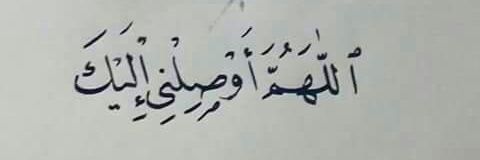 ٱللَّٰهُمَّ أَوْصِلْنِي إِلَيْكَ